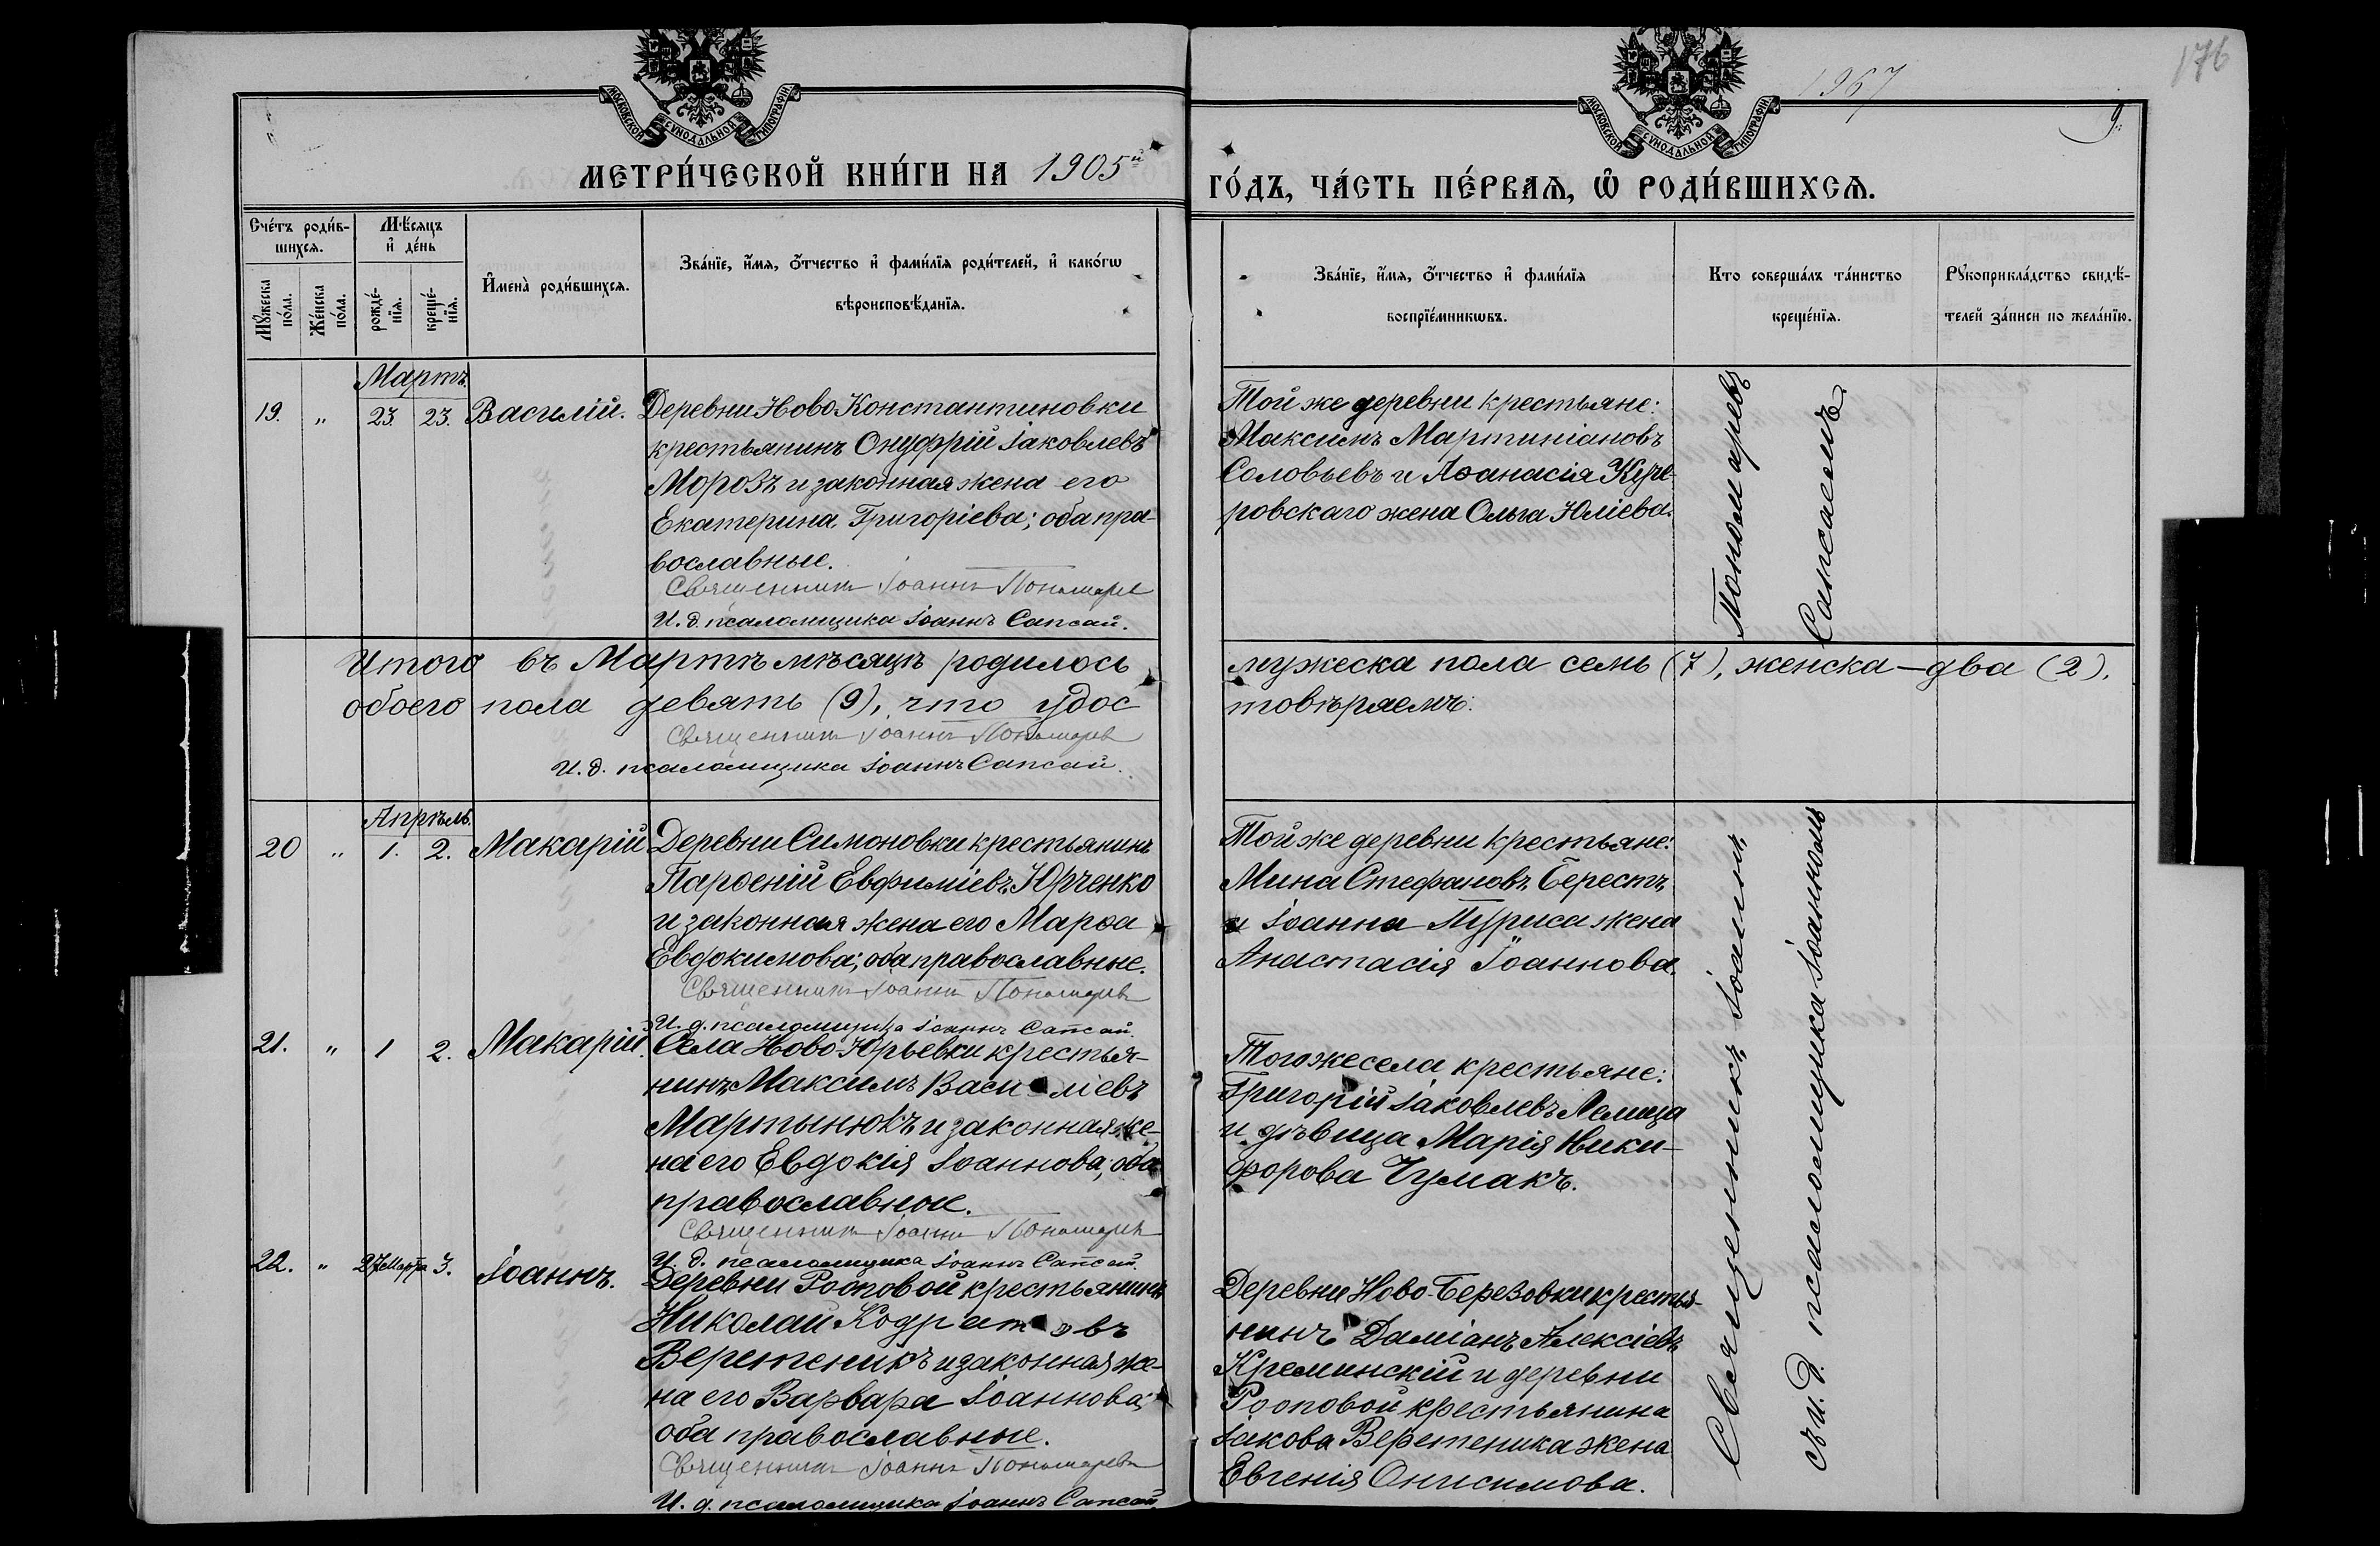 1967
176
9
МОСКОВСКОЙ СѴНОДАЛЬНОЙ ТИПОГРАФІИ
МОСКОВСКОЙ СѴНОДАЛЬНОЙ ТИПОГРАФІИ
МЕТРИ́ЧЕСКОЙ КНИ́ГИ НА 1905й
ГО́ДЪ, ЧА́СТЬ ПЕ́РВАѦ, Ѽ РОДИ́ВШИХСѦ.
Сче́тъ роди́в-
шихсѧ.
Мꙋ́жеска по́ла.
Же́нска по́ла.
Мѣ́сѧцъ
и҆ де́нь
рожде́-
нїѧ.
креще́-
нїѧ.
И҆мена̀ роди́вшихсѧ.
Зва́нїе, и҆́мѧ, ѻ҆́тчество и҆ фами́лїѧ роди́телей, и҆ како́гѡ
вѣроисповѣ́данїѧ.
Зва́нїе, и҆́мѧ, ѻ҆́тчество и҆ фами́лїѧ
воспрїе́мникѡвъ.
Кто соверша́лъ та́инство
креще́нїѧ.
Рꙋкоприкла́дство свидѣ́-
телей за́писи по жела́нїю.
Мартъ.
19. " 23. 23. Василій.
Деревни Ново-Константиновки
крестьянинъ Онуфрій Іаковлевъ
Морозъ и законная жена его
Екатерина Григоріева; оба пра-
вославные.
Священникъ Іоаннъ Пономаревъ
И. д. псаломщика Іоаннъ Сапсай.
Той же деревни крестьяне:
Максимъ Мартиніановъ
Соловьевъ и Аѳанасія
ровскаго жена Ольга Юліева.
Пономаревъ
Сапсаемъ.
Итого въ Мартѣ мѣсяцѣ родилось
мужеска пола семь (7), женска — два (2),
обоего пола девять (9), что удос
товѣряемъ:
Священникъ Іоаннъ Пономаревъ
И. д. псаломщика Іоаннъ Сапсай.
Апрѣль.
20 " 1. 2. Макарій
Деревни Симоновки крестьянинъ
Парѳеній Евфиміевъ Юрченко
и законная жена его Марѳа
Евдокимова; оба православные.
Священникъ Іоаннъ Пономаревъ
И. д. псаломщика Іоаннъ Сапсай.
Той же деревни крестьяне:
Мина Стефановъ Берестъ
и Іоанна Пуриса жена
Анастасія Іоаннова.
21. " 1 2. Макарій.
Села Ново-Юрьевки крестья-
нинъ Максимъ Василіевъ
Мартынюкъ и законная же-
на его Евдокія Іоаннова; оба
православные.
Священникъ Іоаннъ Пономаревъ
И. д. псаломщика Іоаннъ Сапсай.
Того же села крестьяне:
Григорій Іаковлевъ
и дѣвица Марія Ники-
форова Чумакъ.
22. " 27 Марта 3. Іоаннъ.
Деревни Рооповой крестьянинъ
Николай Кодратовъ
Веретеникъ и законная же-
на его Варвара Іоаннова;
оба православные.
Священникъ Іоаннъ Пономаревъ
И. д. псаломщика Іоаннъ Сапсай.
Деревни Ново-Березовки крестья-
нинъ Даміанъ Алексіевъ
Креминскій и деревни
Рооповой крестьянина
Іакова Веретеника жена
Евгенія Онисимова.
Священникъ Іоаннъ
съ и. д. псаломщика Іоанномъ